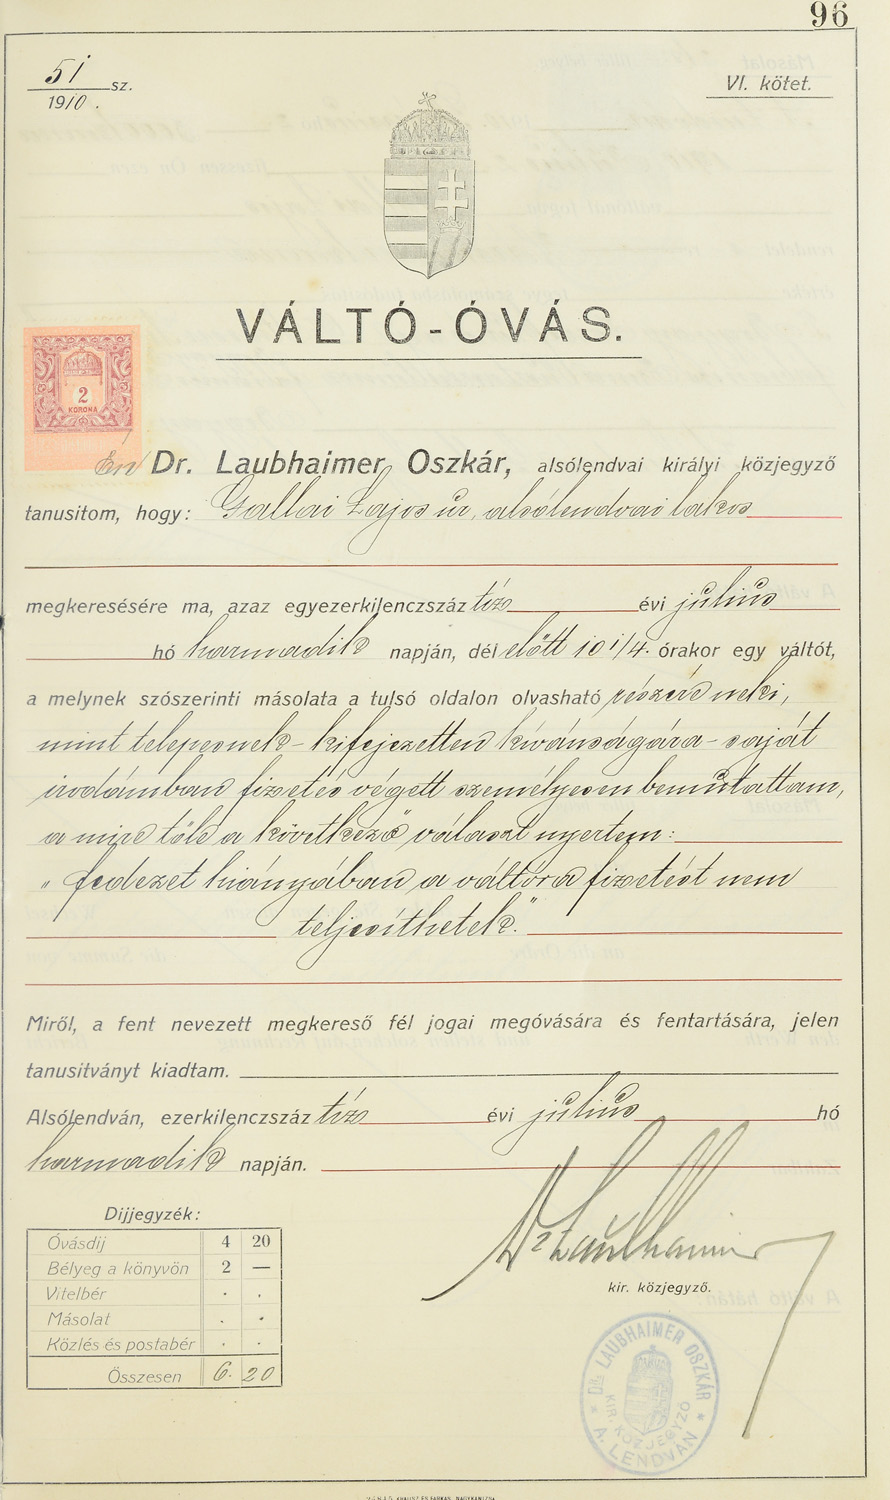 96
51 sz.
1910.
VI. kötet.
VÁLTÓ-ÓVÁS.
2
KORONA
Én Dr. Laubhaimer Oszkár, alsólendvai királyi közjegyző
tanusitom, hogy: Gallai Lajos úr, alsólendvai lakos
megkeresésére ma, azaz egyezerkilenczszáz tíz évi július
hó harmadik napján, dél előtt 10 1/4. órakor egy váltót,
a melynek szószerinti másolata a tulsó oldalon olvasható részére neki,
mint telepesnek - kifejezetten kívánságára - saját
irodámban fizetés végett személyesen bemutattam,
a mire tőle a következő választ nyertem:
"fedezet hiányában a váltóra fizetést nem
teljesíthetek."
Miről, a fent nevezett megkereső fél jogai megóvására és fentartására, jelen
tanusitványt kiadtam.
Alsólendván, ezerkilenczszáz tíz évi július hó
harmadik napján.
Dr Laubhaimer
kir. közjegyző.
Dijjegyzék:
Óvásdij 4 20
Bélyeg a könyvön 2 —
Vitelbér . .
Másolat . .
Közlés és postabér . .
Összesen 6. 20
* DR. LAUBHAIMER OSZKÁR *
KIR. KÖZJEGYZŐ
A. LENDVÁN